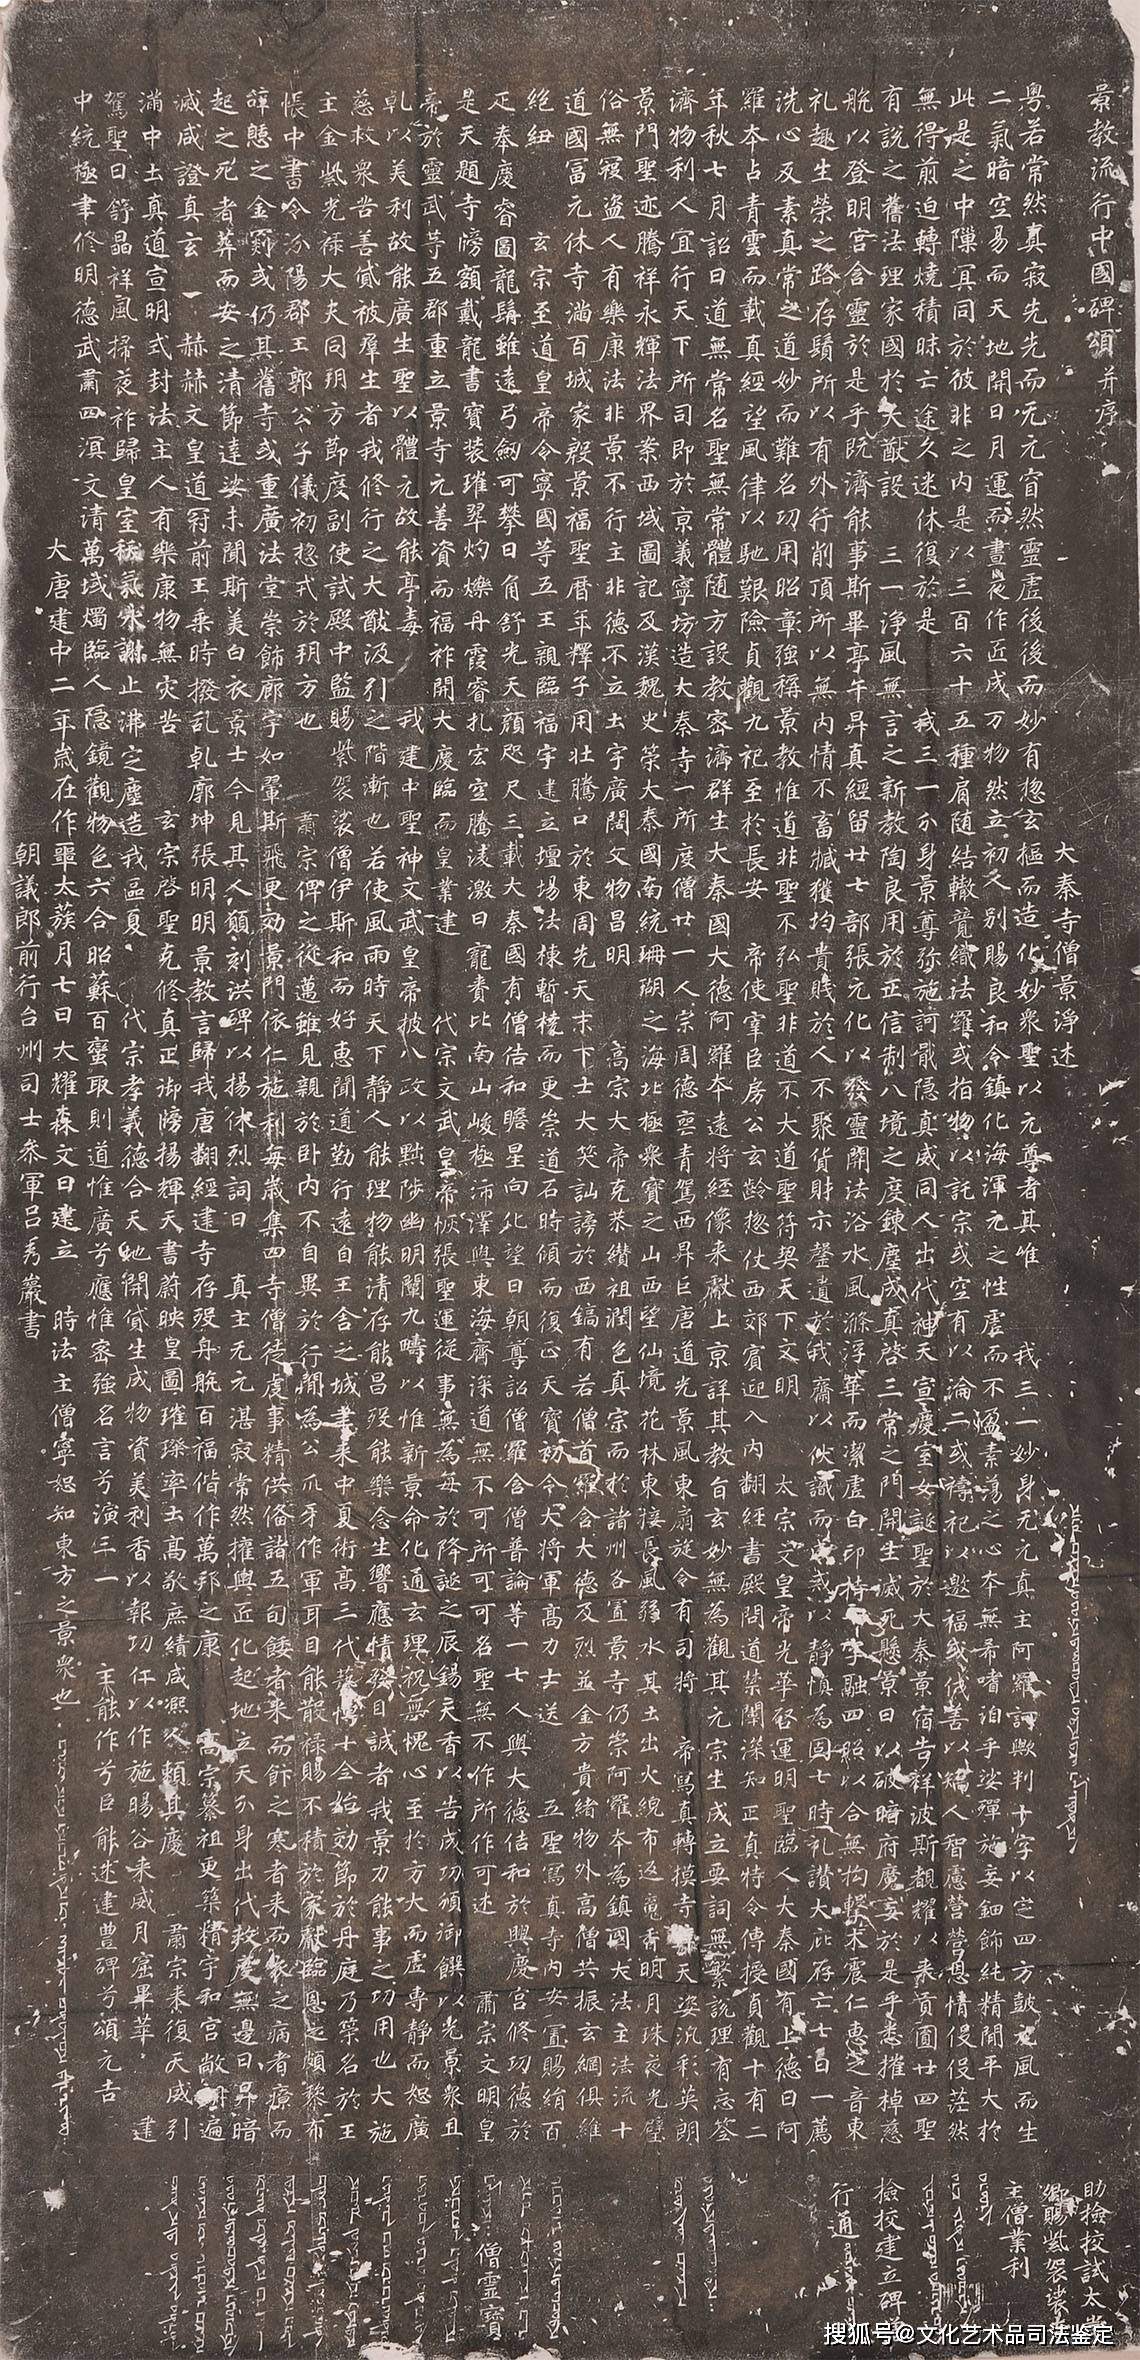 景教流行中國碑頌并序
大秦寺僧景淨述
粵若常然真寂先先而无元窅然靈虛後後而妙有惣玄摳而造化妙衆聖以元尊者其唯 我三一妙身无元真主阿羅訶歟判十字以定四方鼓元風而生
二氣暗空易而天地開日月運而晝夜作匠成万物然立初人別賜良和令鎮化海渾元之性虛而不盈素蕩之心本無希嗜洎乎娑殫施妄鈿飾純精閒平大於
此是之中隟冥同於彼非之內是以三百六十五種肩随結轍競織法羅或指物以託宗或空有以淪二或禱祀以邀福或伐善以矯人智慮營營恩情役役茫然
無得煎迫轉燒積昧亡途久迷休復於是 我三一分身景尊弥施訶戢隱真威同人出代神天宣慶室女誕聖於大秦景宿告祥波斯覩耀以来貢圓廿四聖
有說之舊法理家國於大猷設 三一淨風無言之新教陶良用於正信制八境之度鍊塵成真啓三常之門開生滅死懸景日以破暗府魔妄於是乎悉摧棹慈
航以登明宮含靈於是乎既濟能事斯畢亭午昇真經留廿七部張元化以發靈關法浴水風滌浮華而潔虛白印持十字融四照以合無拘擊木震仁惠之音東
礼趣生榮之路存鬚所以有外行削頂所以無內情不畜臧獲均貴賤於人不聚貨財示罄遺於我齋以伏識而成戒以靜慎為固七時礼讚大庇存亡七日一薦
洗心反素真常之道妙而難名功用昭彰強稱景教惟道非聖不弘聖非道不大道聖符契天下文明 太宗文皇帝光華啓運明聖臨人大秦國有上德曰阿
羅本占青雲而載真經望風律以馳艱險貞觀九祀至於長安 帝使宰臣房公玄齡惣仗西郊賓迎入內翻經書殿問道禁闈深知正真特令傳授貞觀十有二
年秋七月詔曰道無常名聖無常體随方設教密濟群生大秦國大德阿羅本遠將經像来獻上京詳其教旨玄妙無為觀其元宗生成立要詞無繁說理有忘筌
濟物利人宜行天下所司即於京義寧坊造大秦寺一所度僧廿一人宗周德喪青駕西昇巨唐道光景風東扇旋令有司將 帝寫真轉摸寺壁天姿汎彩英朗
景門聖迹騰祥永輝法界案西域圖記及漢魏史策大秦國南統珊瑚之海北極衆寶之山西望仙境花林東接長風弱水其土出火綄布返魂香明月珠夜光璧
俗無寇盜人有樂康法非景不行主非德不立土宇廣闊文物昌明 高宗大帝克恭纘祖潤色真宗而於諸州各置景寺仍崇阿羅本為鎮國大法主法流十
道國富元休寺滿百城家殷景福聖曆年釋子用壯騰口於東周先天末下士大笑訕謗於西鎬有若僧首羅含大德及烈並金方貴緒物外高僧共振玄綱俱維
絕紐 玄宗至道皇帝令寧國等五王親臨福宇建立壇場法棟暫橈而更崇道石時傾而復正天寶初令大將軍高力士送 五聖寫真寺內安置賜絹百
疋奉慶睿圖龍髯雖遠弓劒可攀日角舒光天顏咫尺三載大秦國有僧佶和瞻星向化望日朝尊詔僧羅含僧普論等一七人與大德佶和於興慶宮修功德於
是天題寺牓額戴龍書寶装璀翠灼爍丹霞睿扎宏空騰淩激日寵賚比南山峻極沛澤與東海齊深道無不可所可可名聖無不作所作可述 肅宗文明皇
帝於靈武等五郡重立景寺元善資而福祚開大慶臨而皇業建 代宗文武皇帝恢張聖運從事無為每於降誕之辰錫天香以告成功頒御饌以光景衆且
乹以美利故能廣生聖以體元故能亭毒 我建中聖神文武皇帝披八政以黜陟幽明闡九疇以惟新景命化通玄理祝無愧心至於方大而虛專靜而恕廣
慈救衆苦善貸被羣生者我修行之大猷汲引之階漸也若使風雨時天下靜人能理物能清存能昌歿能樂念生響應情發目誠者我景力能事之功用也大施
主金紫光祿大夫同玥方節度副使試殿中監賜紫袈裟僧伊斯和而好惠聞道勤行遠自王舍之城聿来中夏術高三代藝博十全始効節於丹庭乃策名於王
帳中書令汾陽郡王郭公子儀初惣戎於玥方也 肅宗俾之從邁雖見親於卧內不自異於行閒為公爪牙作軍耳目能散祿賜不積於家獻臨恩之頗黎布
辭憩之金罽或仍其舊寺或重廣法堂崇飾廊宇如翬斯飛更効景門依仁施利每歲集四寺僧徒虔事精供俻諸五旬餧者来而飰之寒者来而衣之病者療而
起之死者葬而安之清節達娑未聞斯美白衣景士今見其人願刻洪碑以揚休烈詞曰 真主无元湛寂常然權輿匠化起地立天分身出代救度無邊日昇暗
滅咸證真玄 赫赫文皇道冠前王乗時撥乱乹廓坤張明明景教言歸我唐翻經建寺存歿舟航百福偕作萬邦之康 高宗纂祖更築精宇和宮敞朗遍
滿中土真道宣明式封法主人有樂康物無灾苦 玄宗啓聖克修真正御牓揚輝天書蔚映皇圖璀璨率土高敬庶績咸熙人賴其慶 肅宗来復天威引
駕聖日舒晶祥風掃夜祚歸皇室祅氛永謝止沸定塵造我區夏 代宗孝義德合天地開貸生成物資美利香以報功仁以作施暘谷来威月窟畢萃 建
中統極聿修明德武肅四溟文清萬域燭臨人隱鏡觀物色六合昭蘇百蠻取則道惟廣兮應惟密強名言兮演三一 主能作兮臣能述建豊碑兮頌元吉
大唐建中二年歲在作噩太蔟月七日大耀森文日建立 時法主僧寧恕知東方之景衆也
朝議郎前行台州司士參軍呂秀巖書
助撿挍試太常
卿賜紫袈裟寺
主僧業利
撿挍建立碑僧
行通
僧靈寶
搜狐号@文化艺术品司法鉴定